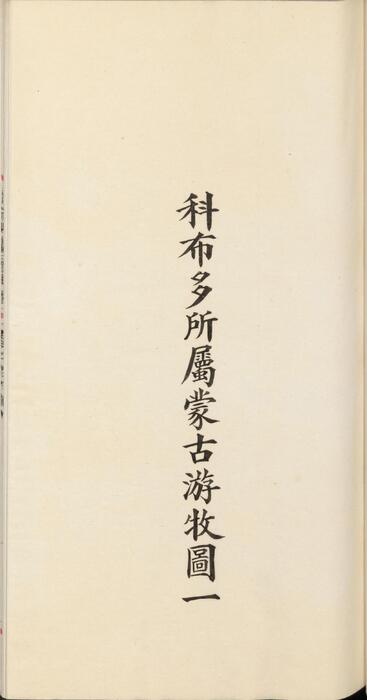 科布多所屬蒙古游牧圖一